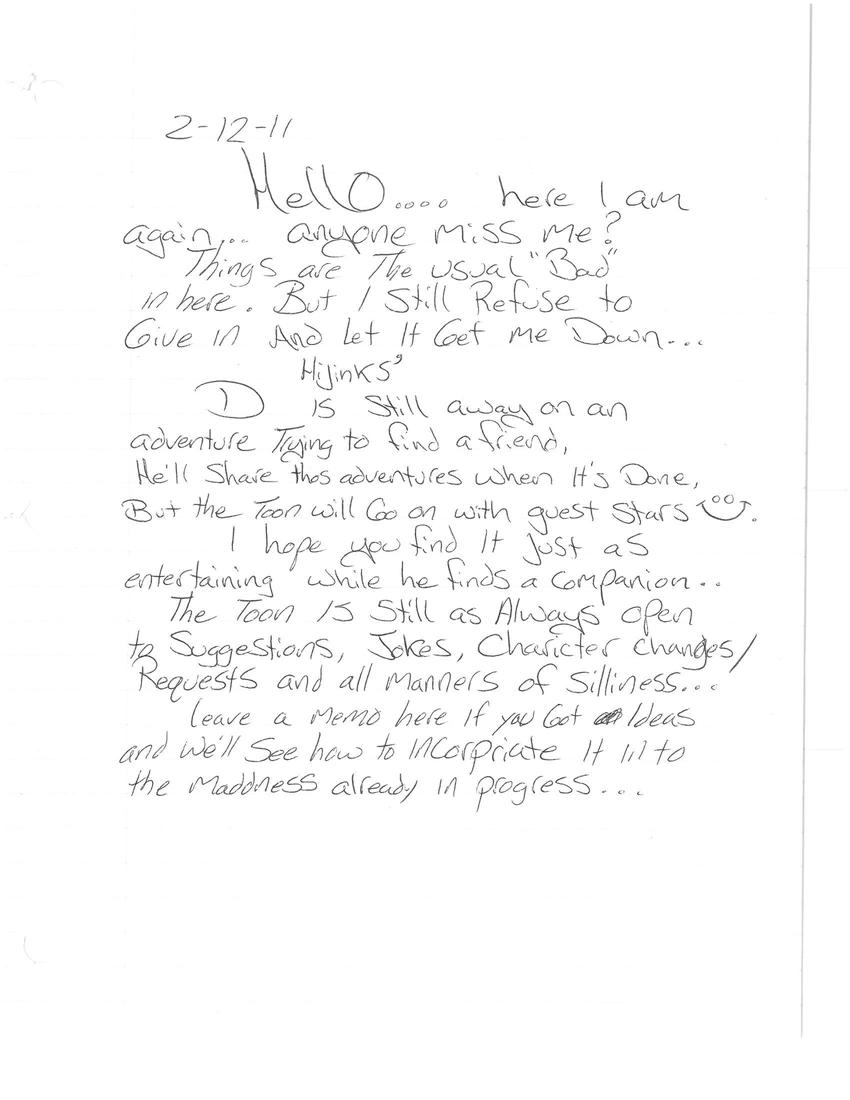 2-12-11
Hello.... here I am
again... anyone miss me?
Things are The usual "Bad"
in here. But I Still Refuse to
Give in And Let It Get me Down...
HiJinks'
D is Still away on an
adventure Trying to find a friend,
He'll Share thos adventures when It's Done,
But the Toon will Go on with guest Stars.
I hope you find It Just as
entertaining while he finds a companion..
The Toon IS Still as Always open
to Suggestions, Jokes, Charicter changes/
Requests and all manners of Silliness...
Leave a memo here If you Got Ideas
and we'll See how to Incorpriate It into
the maddness already in progress...